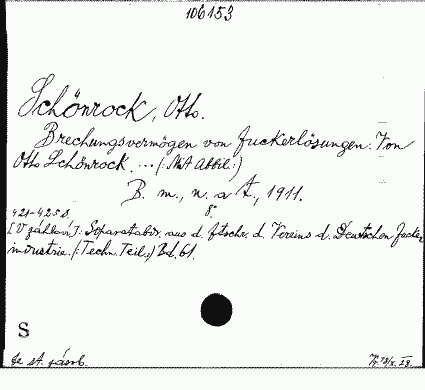 106153
Schönrock, Otto.
Brechungsvermögen von Zuckerlösungen. Von
Otto Schönrock. ... (: Mit Abbil :)
B. m., n. a t., 1911.
8°.
421-425 s.
[V záhlaví]: Separatabdr. aus d. Ztschr. d. Vereins d. Deutschen Zucker
industrie. (: Techn. Teil :) Bd. 61.
S